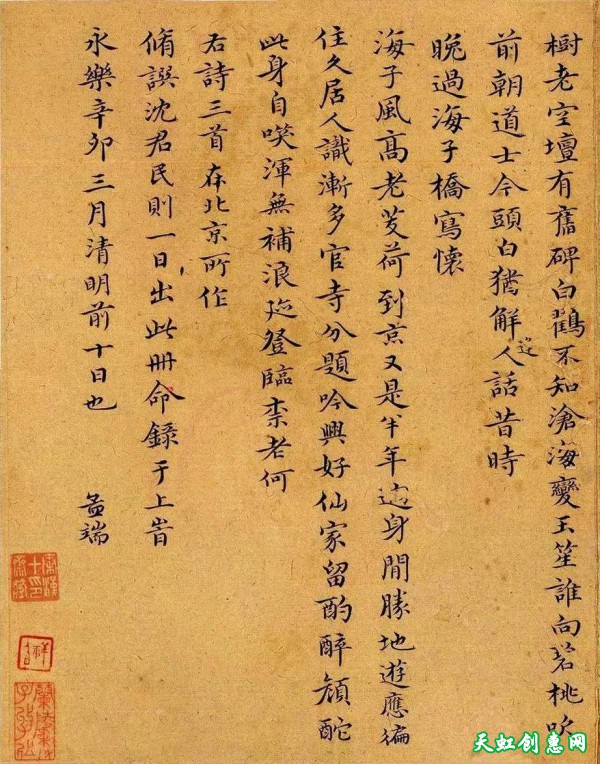 樹老空壇有舊碑白鶴不知滄海變玉笙誰向碧桃吹
前朝道士今頭白猶解逢人話昔時
晚過海子橋寫懷
海子風高老芰荷到京又是半年過身閒勝地遊應徧
住久居人識漸多官寺分題吟興好仙家留酌醉顏酡
此身自咲渾無補浪迹登臨柰老何
右詩三首在北京所作
脩譔沈君民則一日出此冊命錄于上旹
永樂辛卯三月清明前十日也
孟端
天虹创惠网